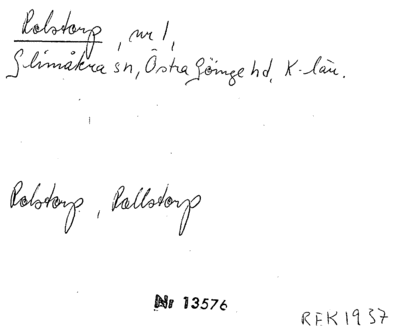 Rolstorp, nr 1,
Glimåkra sn, Östra Göinge hd, K-län.
Rolstorp, Rallstorp
Nr 13576
RFK 1937